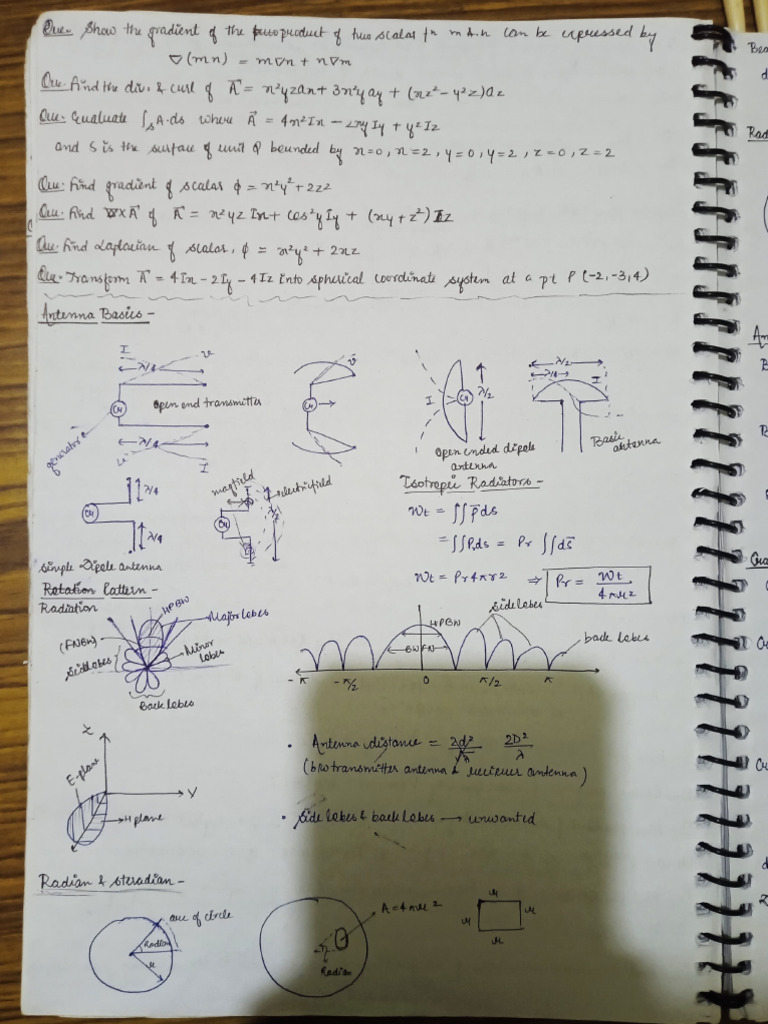 Que. Show the gradient of the product of two scalar fn m & n can be expressed by
∇(mn) = m∇n + n∇m
Que. Find the div. & curl of A⃗ = x²yzax + 3x²yay + (xz² - y²z)az
Que. Evaluate ∫s A.ds where A⃗ = 4x²Ix - Iy + y²Iz
and S is the surface of unit bounded by x=0, x=2, y=0, y=2, z=0, z=2
Que. Find gradient of scalar φ = x²y² + 2zz
Que. Find ∇×A⃗ of A⃗ = x²yz Ix + cos²y Iy + (xy + z²) Iz
Que. Find Laplacian of scalar, φ = x²y² + 2xz
Que. Transform A⃗ = 4Ix - 2Iy - 4Iz into spherical coordinate system at a pt P (-2, -3, 4)
Antenna Basics -
I v
λ/4
open end transmitter
generator
λ/4
I
v
I λ/2
open ended dipole
antenna
λ/2
λ/4
I
Basic
antenna
λ/4
λ/4
simple Dipole antenna
magfield
electricfield
Isotropic Radiators -
Wt = ∬ p̄ ds
= ∬ Pr ds = Pr ∬ ds̄
Wt = Pr 4πr2 ⇒ Pr = Wt / 4πr2
Rotation Pattern -
Radiation
HPBW
Major lobes
(FNBW)
side lobes
Minor
lobes
Back lobes
side lobes
HPBW
BWFN
back lobes
-π -π/2 0 π/2 π
Z
E-plane
Y
H plane
• Antenna distance = 2D²/λ
(b/w transmitter antenna & reciever antenna)
• side lobes & back lobes → unwanted
Radian & steradian -
arc of circle
Radian
r
A = 4πr2
Radian
r
r r
r